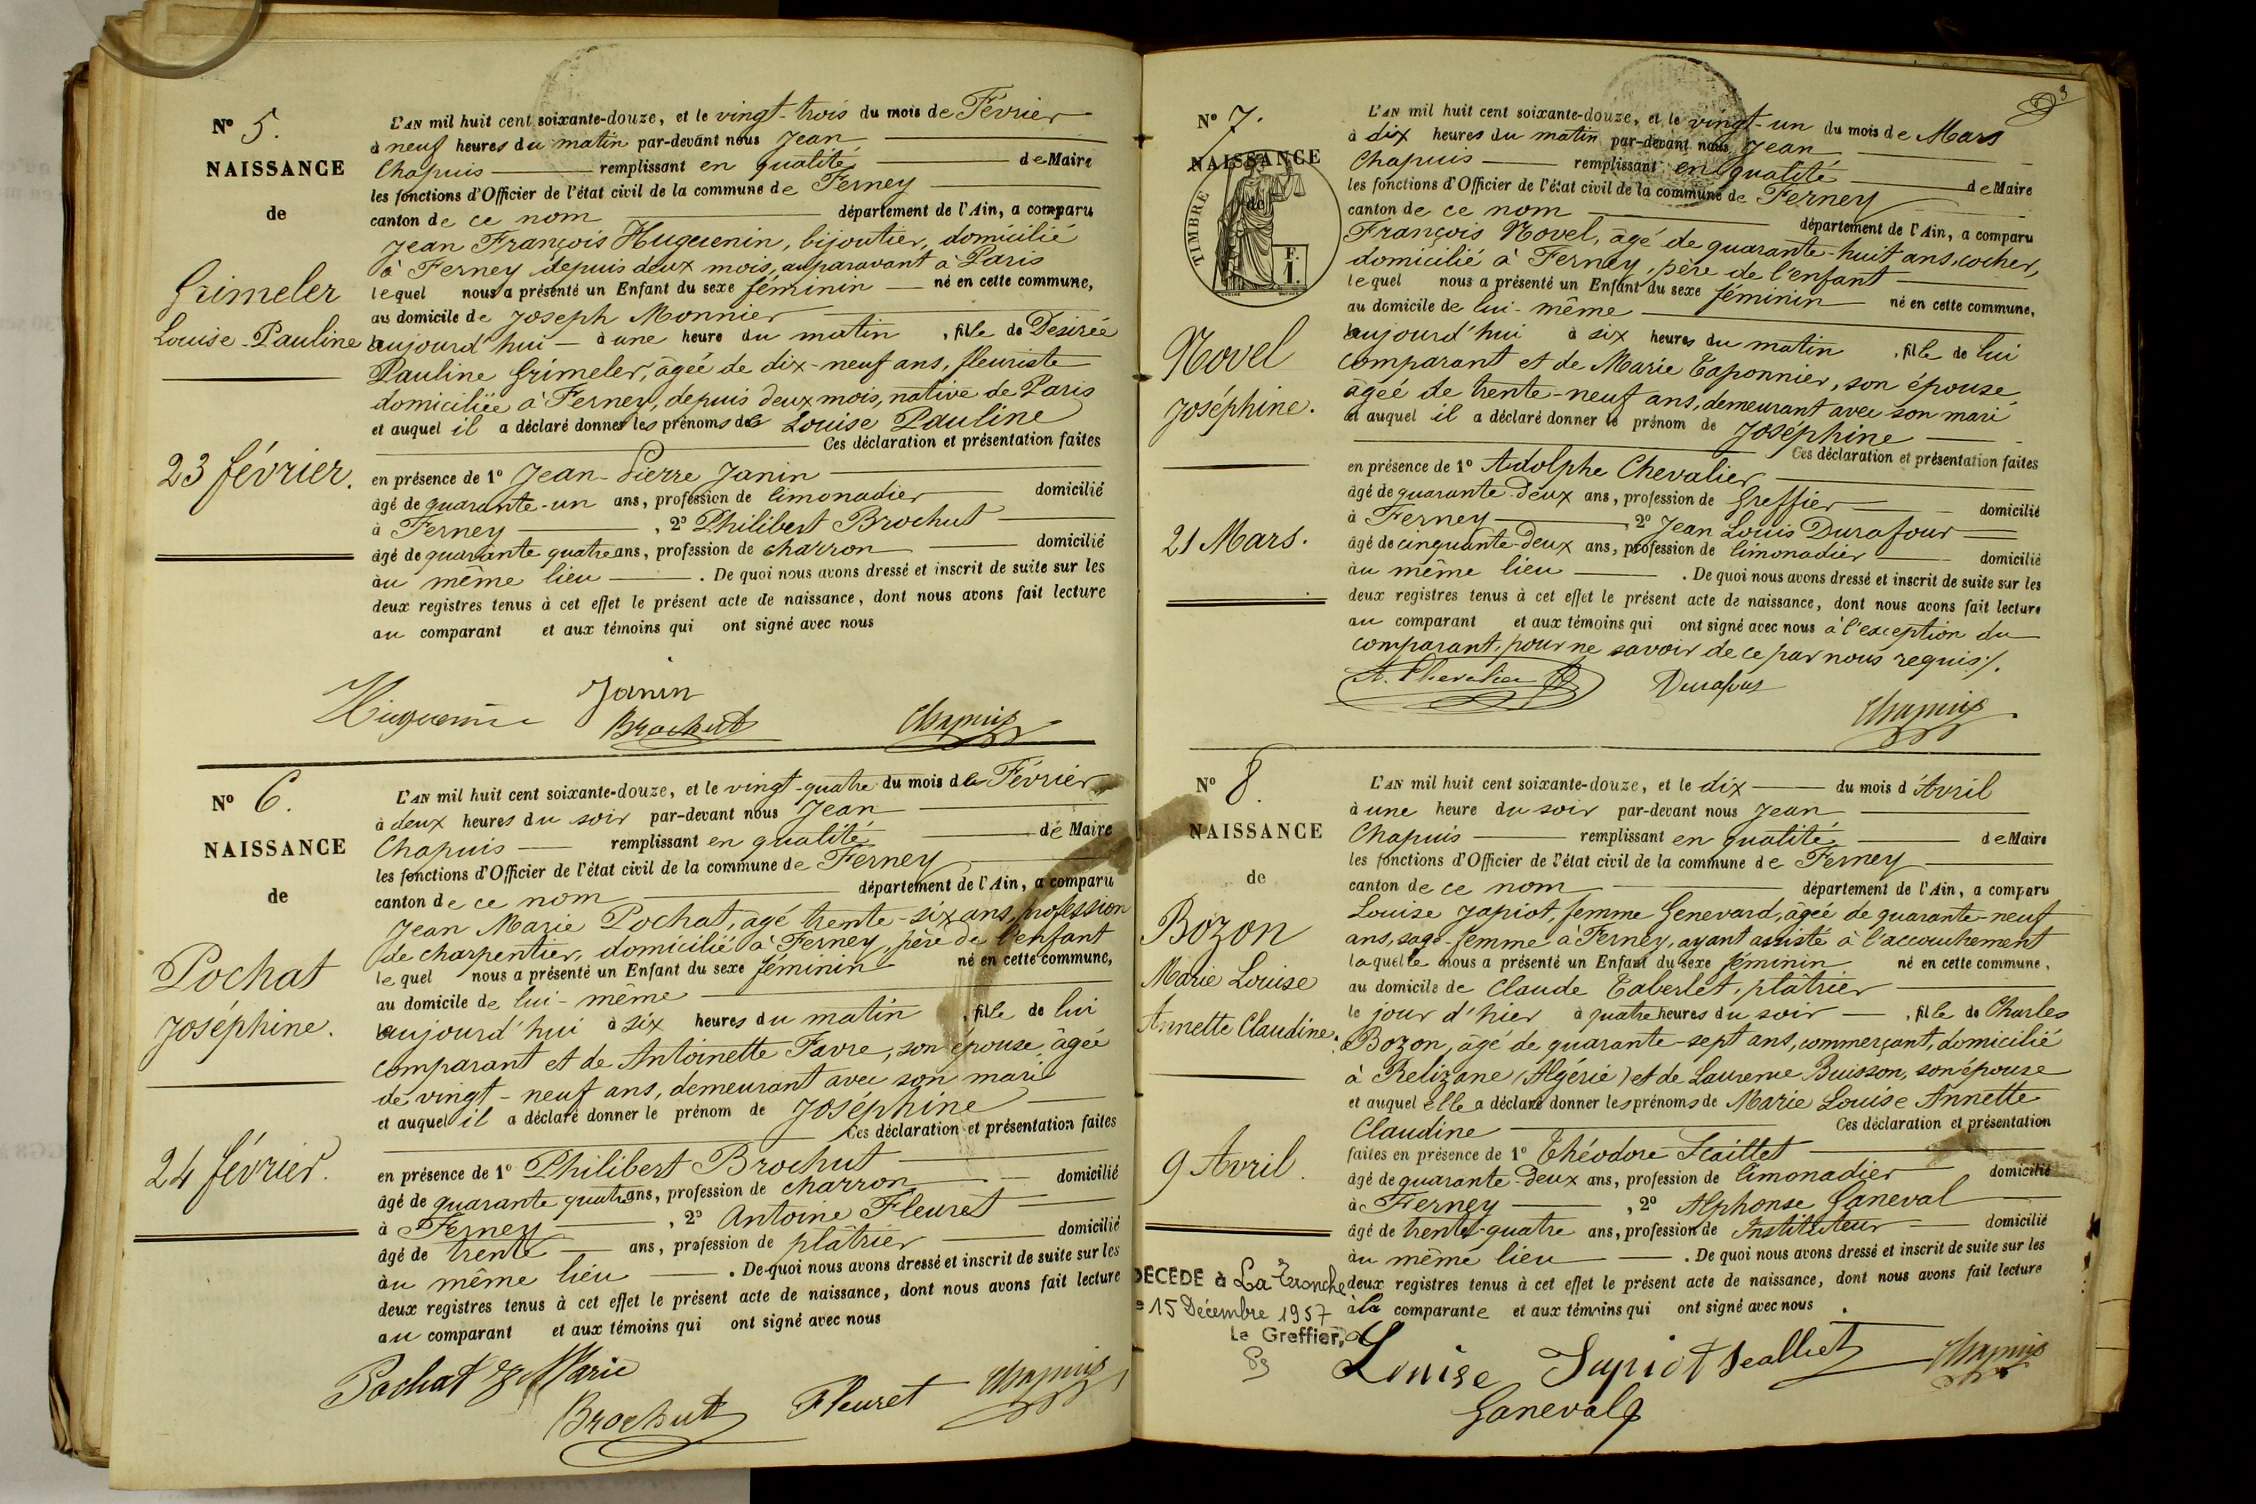 N° 5.
NAISSANCE
de
Grimeler
Louise-Pauline
23 février.
L'AN mil huit cent soixante-douze, et le vingt-trois du mois de Février
à neuf heures du matin par-devant nous Jean
Chapuis remplissant en qualité de Maire
les fonctions d'Officier de l'état civil de la commune de Ferney
canton de ce nom département de l'Ain, a comparu
Jean François Huguenin, bijoutier, domicilié
à Ferney depuis deux mois, auparavant à Paris
lequel nous a présenté un Enfant du sexe féminin né en cette commune,
au domicile de Joseph Monnier
aujourd'hui à une heure du matin, fille de Desirée
Pauline Grimeler, âgée de dix-neuf ans, fleuriste
domiciliée à Ferney, depuis deux mois, native de Paris
et auquel il a déclaré donner les prénoms de Louise Pauline
Ces déclaration et présentation faites
en présence de 1° Jean-Pierre Janin
âgé de quarante-un ans, profession de limonadier domicilié
à Ferney, 2° Philibert Brochut
âgé de quarante quatre ans, profession de charron domicilié
au même lieu. De quoi nous avons dressé et inscrit de suite sur les
deux registres tenus à cet effet le présent acte de naissance, dont nous avons fait lecture
au comparant et aux témoins qui ont signé avec nous
Huguenin Janin
Brochut Chapuis
N° 6.
NAISSANCE
de
Pochat
Joséphine.
24 février.
L'AN mil huit cent soixante-douze, et le vingt-quatre du mois de Février
à deux heures du soir par-devant nous Jean
Chapuis remplissant en qualité de Maire
les fonctions d'Officier de l'état civil de la commune de Ferney
canton de ce nom département de l'Ain, a comparu
Jean Marie Pochat, agé trente-six ans, profession
de charpentier, domicilié à Ferney, père de l'enfant
lequel nous a présenté un Enfant du sexe féminin né en cette commune,
au domicile de lui-même
aujourd'hui à six heures du matin, fille de lui
comparant et de Antoinette Favre, son épouse, âgée
de vingt-neuf ans, demeurant avec son mari
et auquel il a déclaré donner le prénom de Joséphine
Ces déclaration et présentation faites
en présence de 1° Philibert Brochut
âgé de quarante quatre ans, profession de charron domicilié
à Ferney, 2° Antoine Fleuret
âgé de trente ans, profession de plâtrier domicilié
au même lieu. De quoi nous avons dressé et inscrit de suite sur les
deux registres tenus à cet effet le présent acte de naissance, dont nous avons fait lecture
au comparant et aux témoins qui ont signé avec nous
Pochat J Marie
Brochut Fleuret Chapuis
3
N° 7.
NAISSANCE
de
TIMBRE
F.
1.
Novel
Joséphine.
21 Mars.
L'AN mil huit cent soixante-douze, et le vingt-un du mois de Mars
à dix heures du matin par-devant nous Jean
Chapuis remplissant en qualité de Maire
les fonctions d'Officier de l'état civil de la commune de Ferney
canton de ce nom département de l'Ain, a comparu
François Novel, âgé de quarante-huit ans, cocher,
domicilié à Ferney, père de l'enfant
lequel nous a présenté un Enfant du sexe féminin né en cette commune,
au domicile de lui-même
aujourd'hui à six heures du matin, fille de lui
comparant et de Marie Taponnier, son épouse
âgée de trente-neuf ans, demeurant avec son mari
et auquel il a déclaré donner le prénom de Joséphine
Ces déclaration et présentation faites
en présence de 1° Adolphe Chevalier
âgé de quarante-deux ans, profession de Greffier domicilié
à Ferney, 2° Jean Louis Durafour
âgé de cinquante-deux ans, profession de limonadier domicilié
au même lieu. De quoi nous avons dressé et inscrit de suite sur les
deux registres tenus à cet effet le présent acte de naissance, dont nous avons fait lecture
au comparant et aux témoins qui ont signé avec nous à l'exception du
comparant, pour ne savoir de ce par nous requis.
A. Chevalier Durafour
Chapuis
N° 8.
NAISSANCE
de
Bozon
Marie Louise
Annette Claudine.
9 Avril.
DECEDE à La Tronche
le 15 Décembre 1957
Le Greffier,
L'AN mil huit cent soixante-douze, et le dix du mois d'Avril
à une heure du soir par-devant nous Jean
Chapuis remplissant en qualité de Maire
les fonctions d'Officier de l'état civil de la commune de Ferney
canton de ce nom département de l'Ain, a comparu
Louise Japiot, femme Genevard, âgée de quarante-neuf
ans, sage-femme à Ferney, ayant assisté à l'accouchement
laquelle nous a présenté un Enfant du sexe féminin né en cette commune,
au domicile de Claude Taberlet, plâtrier
le jour d'hier à quatre heures du soir, fille de Charles
Bozon, agé de quarante-sept ans, commerçant, domicilié
à Relizane (Algérie) et de Laurence Buisson, son épouse
et auquel elle a déclaré donner les prénoms de Marie Louise Annette
Claudine Ces déclaration et présentation
faites en présence de 1° Théodore Scaillet
âgé de quarante-deux ans, profession de limonadier domicilié
à Ferney, 2° Alphonse Ganeval
âgé de trente-quatre ans, profession de Instituteur domicilié
au même lieu. De quoi nous avons dressé et inscrit de suite sur les
deux registres tenus à cet effet le présent acte de naissance, dont nous avons fait lecture
à la comparante et aux témoins qui ont signé avec nous.
Louise Japiot Scalliet Chapuis
Ganeval